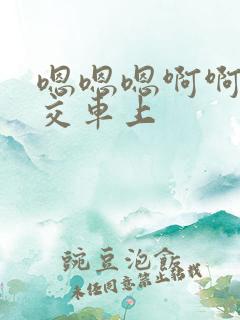 嗯嗯嗯啊啊
交车上
豌豆泡飯
未经同意禁止转载